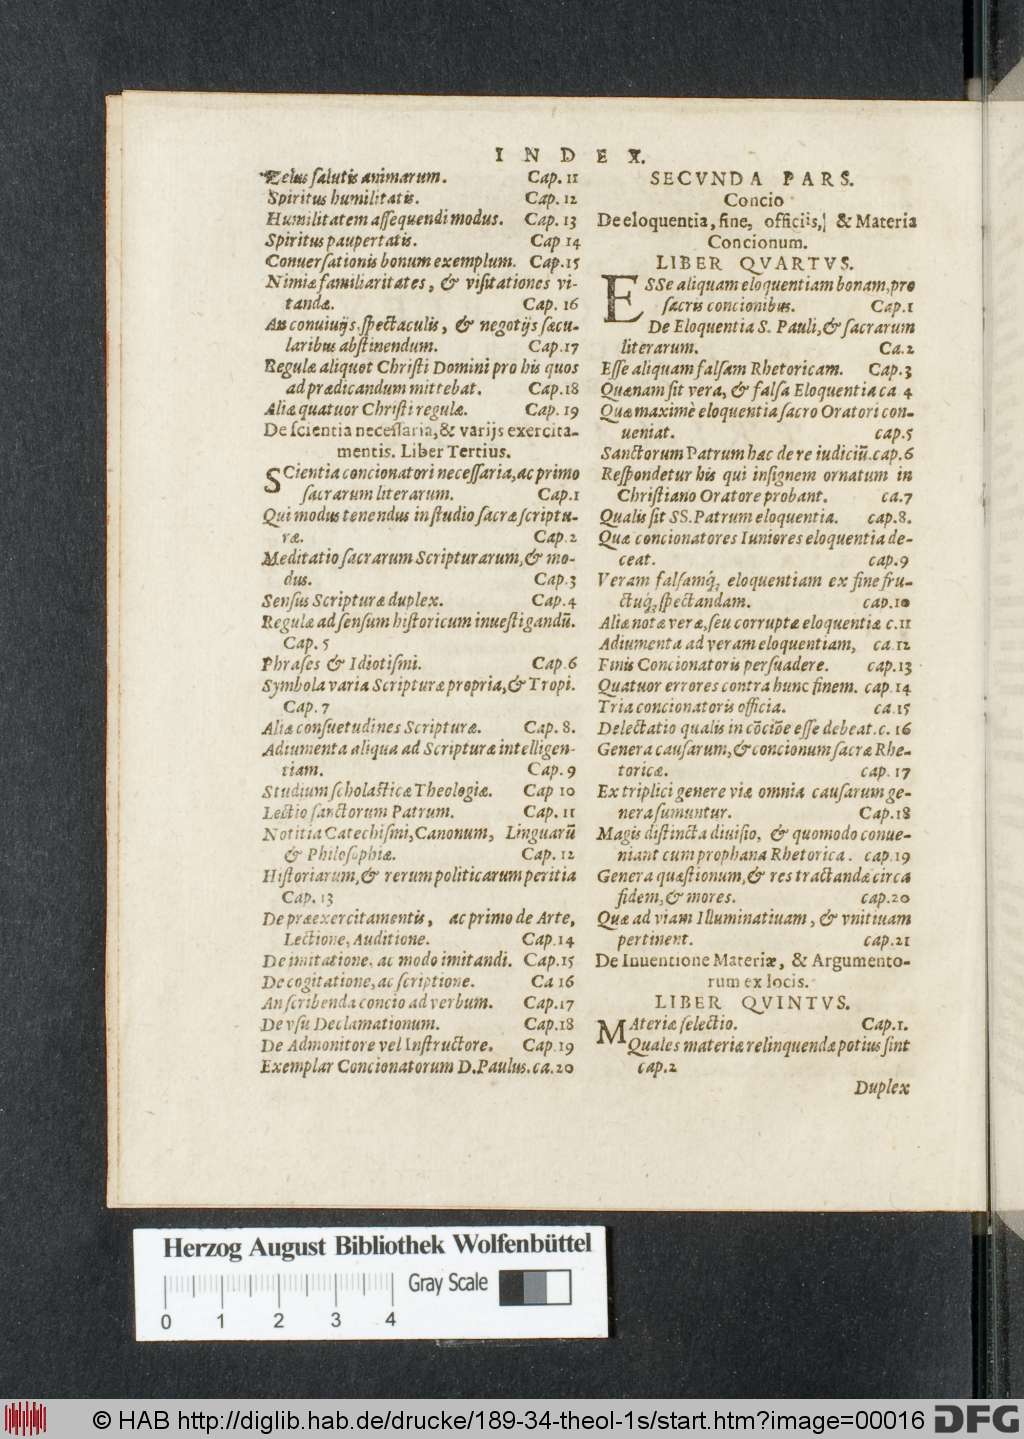 INDEX.
Zelus salutis animarum. Cap. 11
Spiritus humilitatis. Cap. 12
Humilitatem assequendi modus. Cap. 13
Spiritus paupertatis. Cap 14
Conuersationis bonum exemplum. Cap.15
Nimiæ familiaritates, & visitationes vi-
tandæ. Cap. 16
An conuiuijs, spectaculis, & negotijs sæcu-
laribus abstinendum. Cap.17
Regulæ aliquot Christi Domini pro his quos
ad prædicandum mittebat. Cap.18
Aliæ quatuor Christi regulæ. Cap. 19
De scientia necessaria, & varijs exercita-
mentis. Liber Tertius.
SCientia concionatori necessaria, ac primo
sacrarum literarum. Cap.1
Qui modus tenendus in studio sacræ scriptu-
ræ. Cap.2
Meditatio sacrarum Scripturarum, & mo-
dus. Cap.3
Sensus Scripturæ duplex. Cap.4
Regulæ ad sensum historicum inuestigandū.
Cap. 5
Phrases & Idiotismi. Cap.6
Symbola varia Scripturæ propria, & Tropi.
Cap. 7
Aliæ consuetudines Scripturæ. Cap. 8.
Adiumenta aliqua ad Scripturæ intelligen-
tiam. Cap. 9
Studium scholasticæ Theologiæ. Cap 10
Lectio sanctorum Patrum. Cap. 11
Notitia Catechismi, Canonum, Linguarū
& Philosophiæ. Cap. 12
Historiarum, & rerum politicarum peritia
Cap. 13
De præexercitamentis, ac primo de Arte,
Lectione, Auditione. Cap.14
De imitatione, ac modo imitandi. Cap.15
De cogitatione, ac scriptione. Ca 16
An scribenda concio ad verbum. Cap.17
De vsu Declamationum. Cap.18
De Admonitore vel Instructore. Cap.19
Exemplar Concionatorum D. Paulus. ca.20
SECVNDA PARS.
Concio
De eloquentia, fine, officiis, & Materia
Concionum.
LIBER QVARTVS.
ESSe aliquam eloquentiam bonam, pro
sacris concionibus. Cap.1
De Eloquentia S. Pauli, & sacrarum
literarum. Ca.2
Esse aliquam falsam Rhetoricam. Cap.3
Quænam sit vera, & falsa Eloquentia ca 4
Quæ maximè eloquentia sacro Oratori con-
ueniat. cap.5
Sanctorum Patrum hac de re iudiciū. cap.6
Respondetur his qui insignem ornatum in
Christiano Oratore probant. ca.7
Qualis sit SS. Patrum eloquentia. cap.8.
Quæ concionatores Iuniores eloquentia de-
ceat. cap.9
Veram falsamq́; eloquentiam ex fine fru-
ctuq́; spectandam. cap.10
Aliæ notæ veræ, seu corruptæ eloquentiæ c.11
Adiumenta ad veram eloquentiam, ca.12
Finis Concionatoris persuadere. cap.13
Quatuor errores contra hunc finem. cap.14
Tria concionatoris officia. ca.15
Delectatio qualis in cōciōe esse debeat. c. 16
Genera causarum, & concionum sacræ Rhe-
toricæ. cap. 17
Ex triplici genere viæ omnia causarum ge-
nera sumuntur. Cap.18
Magis distincta diuisio, & quomodo conue-
niant cum prophana Rhetorica. cap.19
Genera quæstionum, & res tractandæ circa
fidem, & mores. cap.20
Quæ ad viam Illuminatiuam, & vnitiuam
pertinent. cap.21
De Inuentione Materiæ, & Argumento-
rum ex locis.
LIBER QVINTVS.
MAteriæ selectio. Cap.1.
Quales materiæ relinquendæ potius sint
cap.2
Duplex
Herzog August Bibliothek Wolfenbüttel
Gray Scale
0 1 2 3 4
© HAB http://diglib.hab.de/drucke/189-34-theol-1s/start.htm?image=00016
DFG